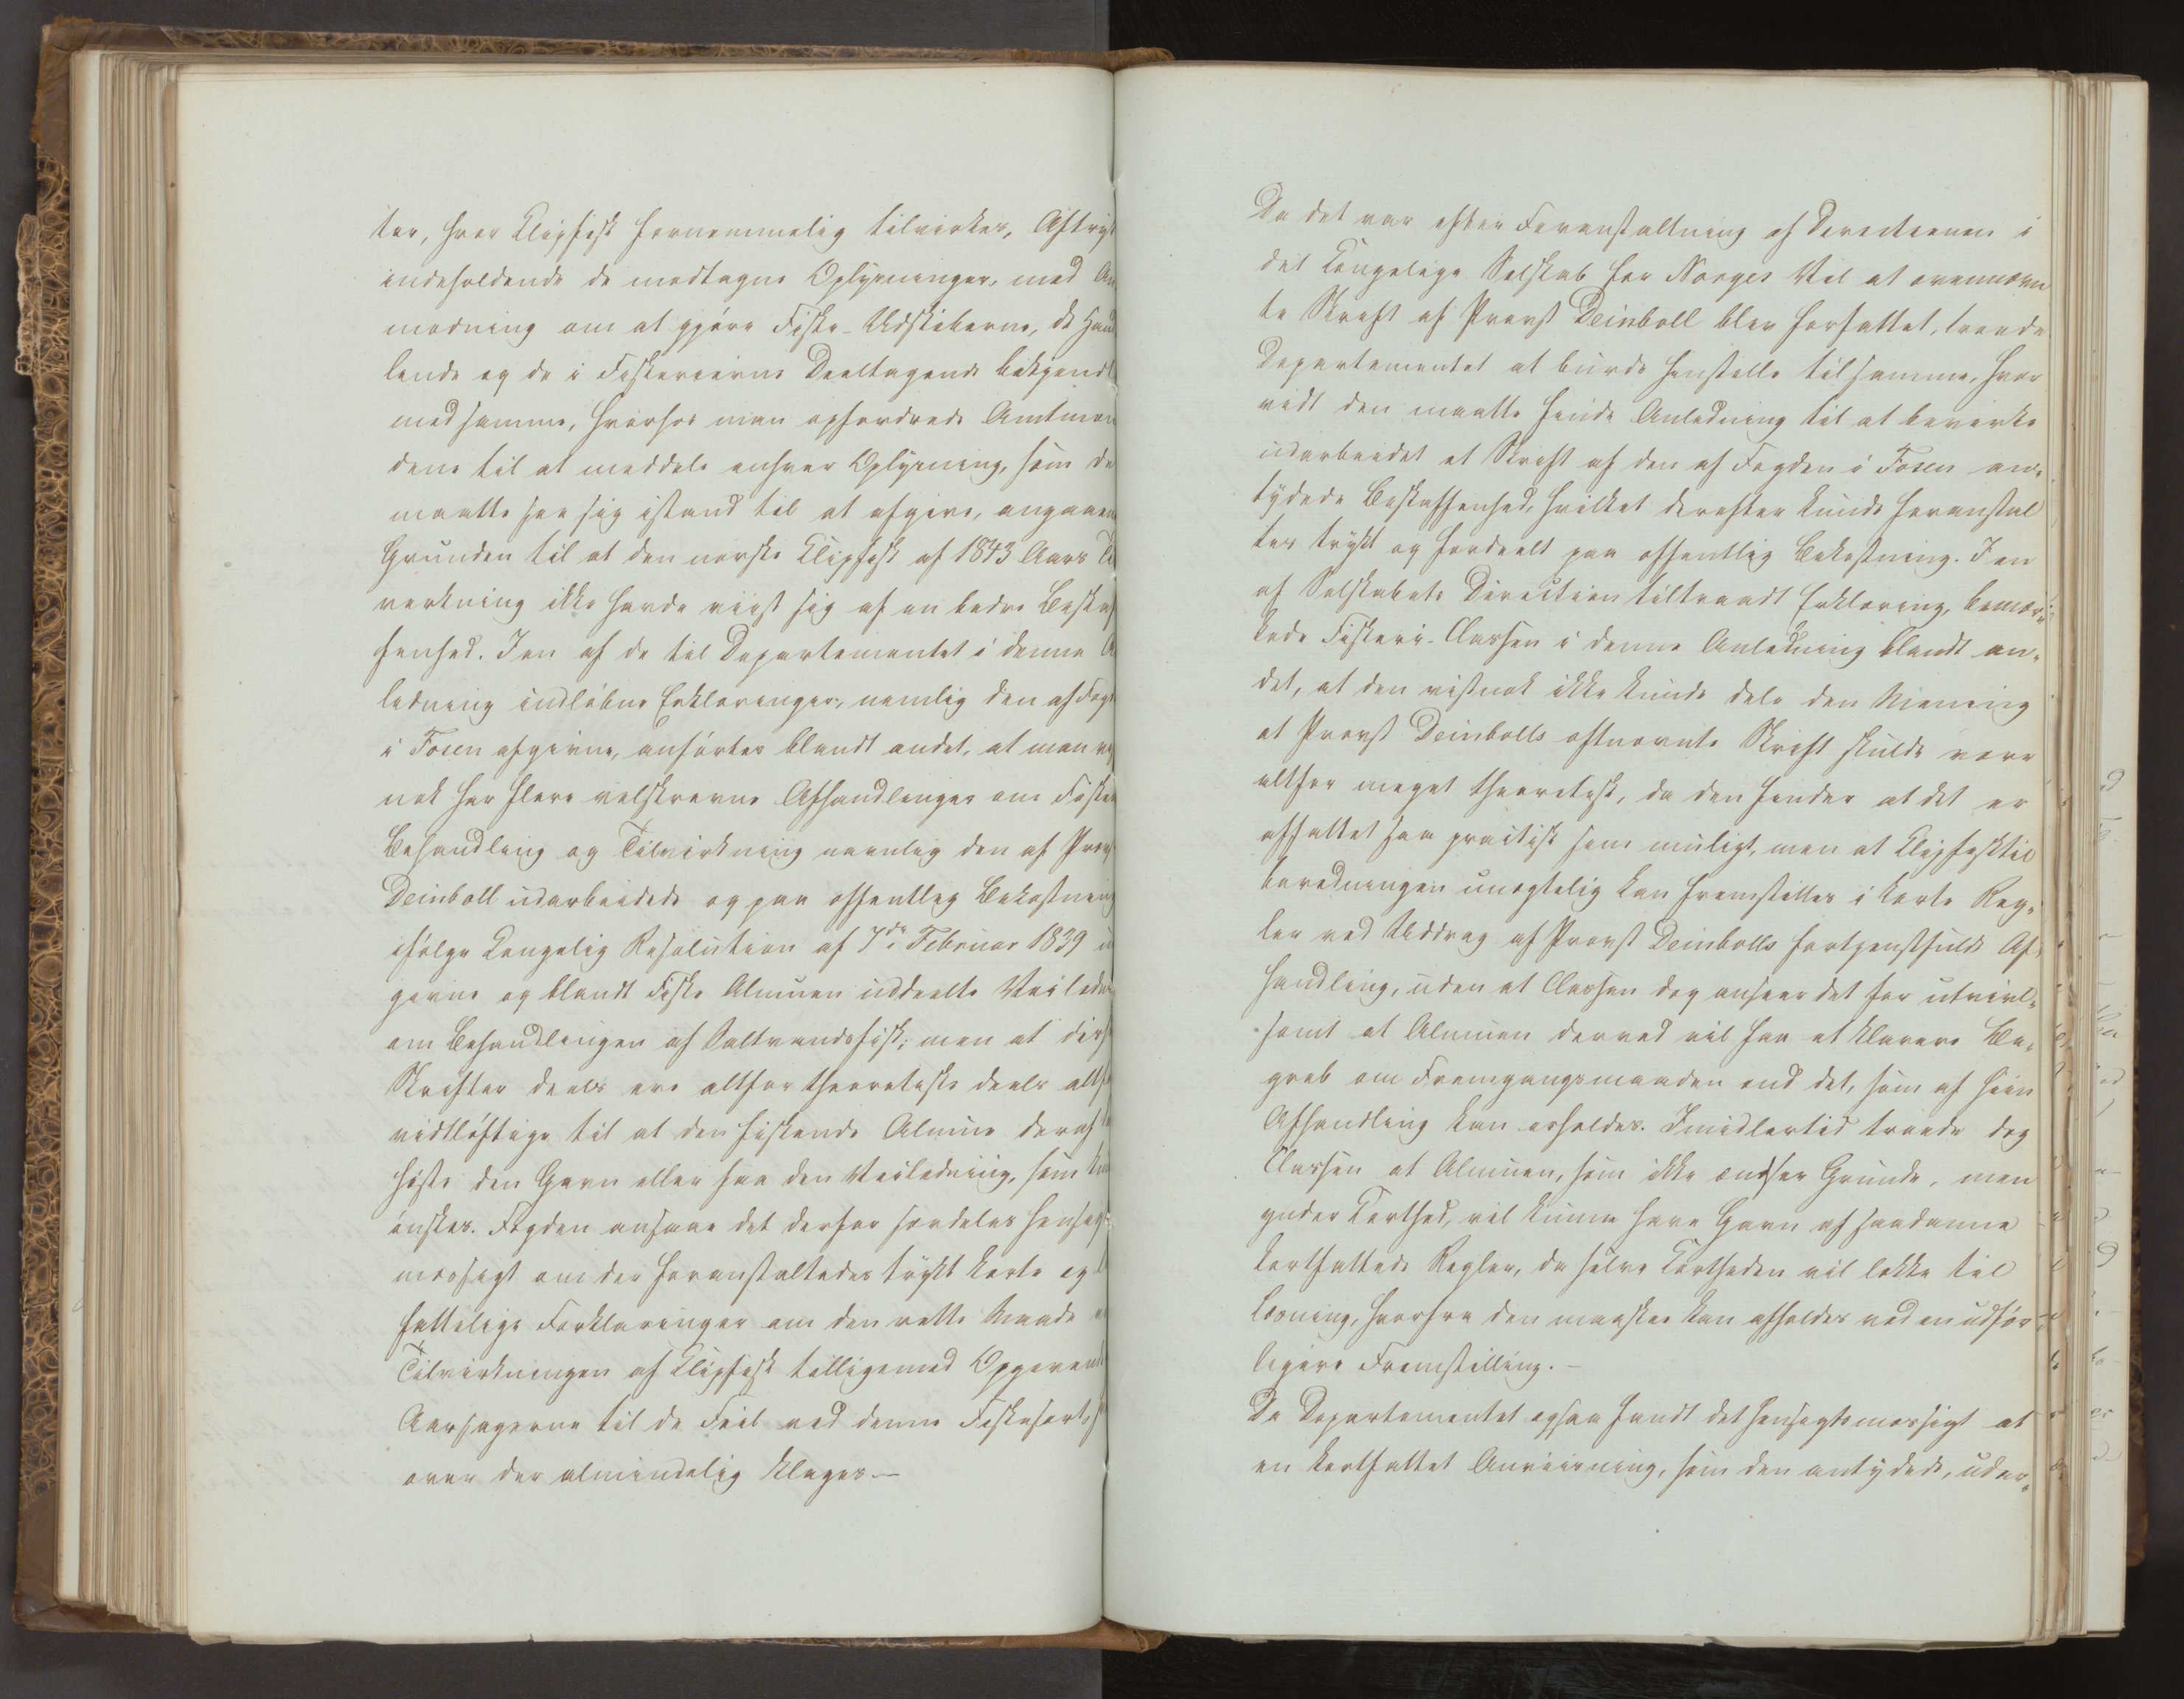 ter, hvor Klipfisk fornemmelig tilvirkes, Aftryk
indeholdende de modtagne Oplysninger, med An
modning om at gjøre Fiske-Udskiberne, de Hand
lende og de i Fiskerierne Deeltagende bekjendt
med samme, hvorhos man opfordrede Amtmæn
dene til at meddele enhver Oplysning, som de
maatte see sig istand til at afgive, angaaen
Grunden til at den norske Klipfisk af 1843 Aars Til
virkning ikke havde viist sig af en bedre Beskaf
fenhed. I en af de til Departementet i denne An
ledning indløbne Erklæringer, nemlig den af Fogd
i Fosen afgivne, anførtes blandt andet, at man vist
nok har flere velskrevne Afhandlinger om Fiskens
Behandling og Tilvirkning navnlig den af Provst
Deinboll udarbeidede og paa offentlig Bekostning
ifølge Kongelig Resolution af 7de Februar 1839 ud
givne og blandt Fiske Almuen uddeelte Veiledn
om Behandlingen af Saltvandsfisk; men at disse
Skrifter deels ere altfor theoretiske deels altfor
vidtløftige til at den fiskende Almue deraf
høste den Gavn eller faa den Veiledning, som kun
ønskes. Fogden ansaae det derfor særdeles hensigts
mæssigt om der foranstaltedes trykt korte og
fattelige Forklaringer om den rette Maade
Tilvirkningen af Klipfisk tilligemed Opgivende
Aarsagerne til de Feil ved denne Fiskesort,
over der almindelig klages.—
Da det var efter Foranstaltning af Directionen i
det Kongelige Selskab for Norges Vel at ovennævn
te Skrift af Provst Deinboll blev forfattet, troede
Departementet at burde henstille til samme, hvor
vidt den maatte finde Anledning til at bevirke
udarbeidet et Skrift af den af Fogden i Fosen an-
tydede Beskaffenhed, hvilket derefter kunde foranstal
tes trykt og fordeelt paa offentlig Bekostning. I en
af Selskabets Direction tiltraadt Erklæring, bemær-
kede Fiskeri-Classen i denne Anledning blandt an-
det, at den vistnok ikke kunde dele den Mening
at Provst Deinbolls oftnævnte Skrift skulde være
altfor meget theoretisk, da den finder at det er
affattet saa practisk som muligt, men at Klipfisktil
beredningen unægtelig kan fremstilles i korte Reg-
ler ved Uddrag af Provst Deinbolls fortjenstfulde Af-
handling, uden at Classen dog anseer det for utvivl-
somt at Almuen derved vil faa et klarere Be-
greb om Fremgangsmaaden end det, som af hiin
Afhandling kan erholdes. Imidlertid troede dog
Classen at Almuen, som ikke ændser Grunde, men
ynder Korthed, vil kunne have Gavn af saadanne
kortfattede Regler, da selve Kortheden vil lokke til
Læsning, hvorfra den maaskee kan afholdes ved en udfør
ligere Fremstilling.—
Da Departementet ogsaa fandt det hensigtsmæssigt at
en kortfattet Anviisning, som den antydede, udar-